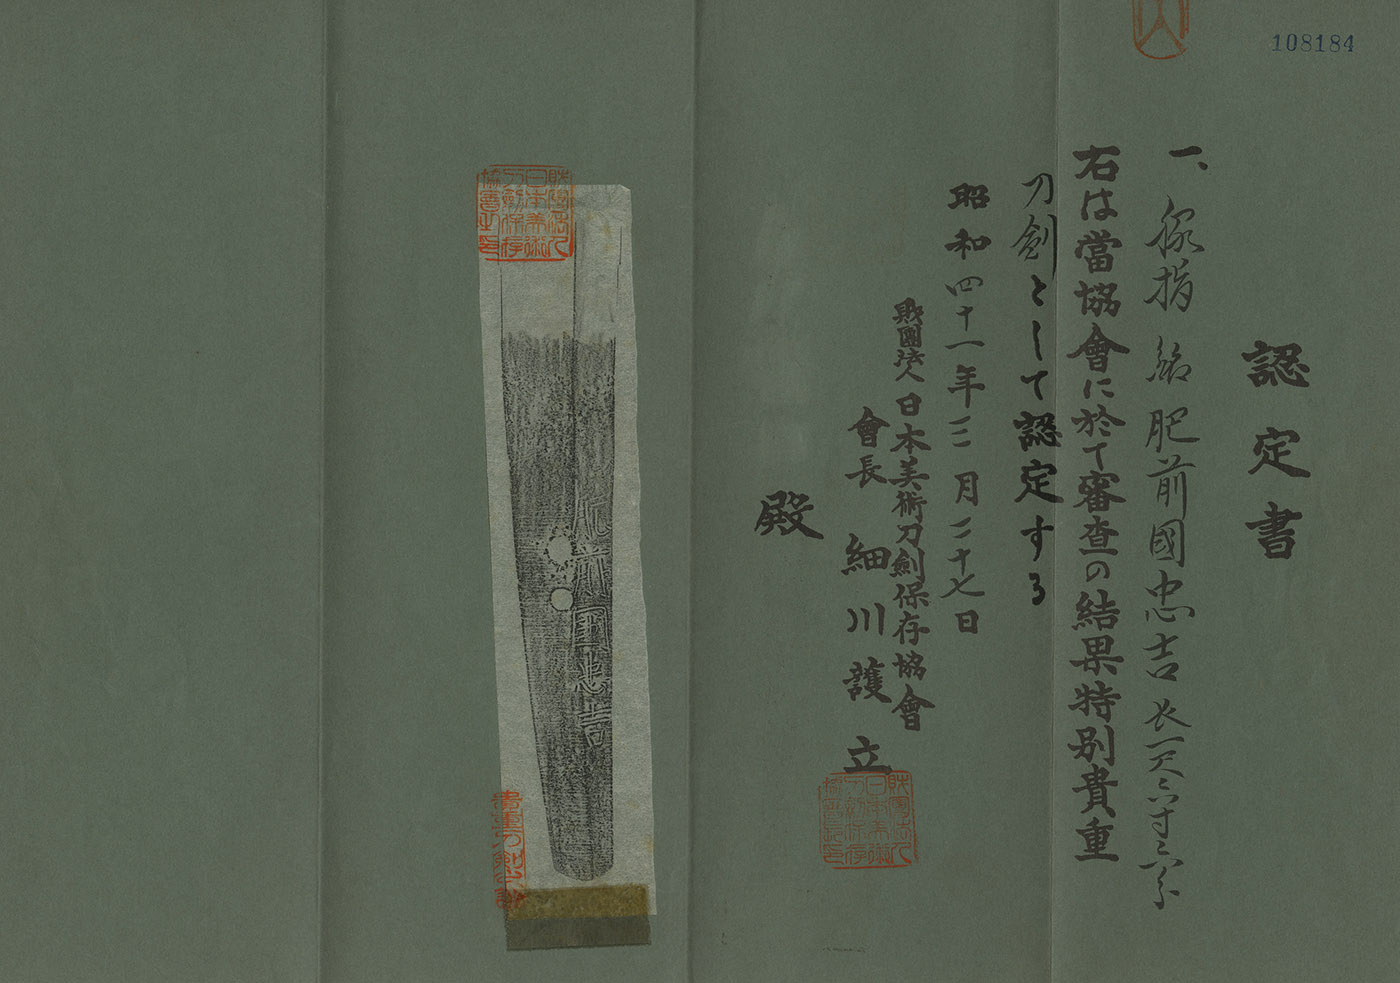 108184
認定書
一、脇指 銘 肥前國忠吉 長一尺六寸六分
右は當協會に於て審査の結果特別貴重
刀劍として認定する
昭和四十一年三月二十七日
財團法人日本美術刀劍保存協會
會長 細川護立
殿
財團法人日本美術刀劍保存協會之印
肥前國忠吉
貴重刀劍之証
財團法人日本美術刀劍保存協會之印